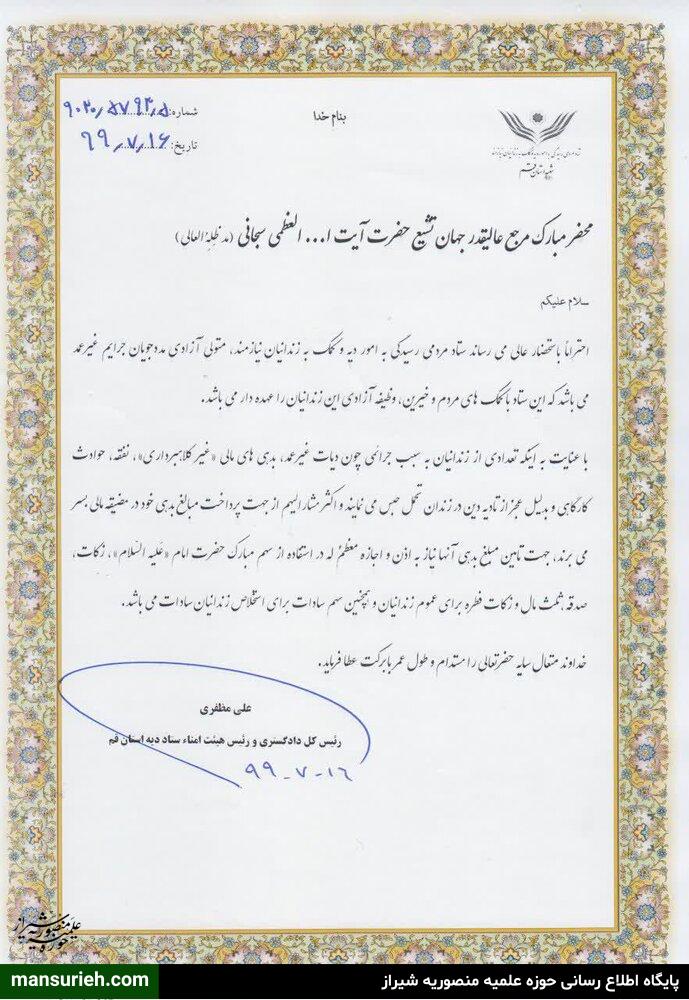 بنام خدا
شماره: ۹۰۲۰/۵۷۹۳/۵
تاریخ: ۹۹/۷/۱۶
شعبه استان قم
محضر مبارک مرجع عالیقدر جهان تشیع حضرت آیت ا... العظمی سبحانی (مد ظله العالی)
سلام علیکم
احتراماً باستحضار عالی می رساند ستاد مردمی رسیدگی به امور دیه و کمک به زندانیان نیازمند، متولی آزادی مددجویان جرایم غیرعمد
می باشد که این ستاد با کمک های مردم و خیرین، وظیفه آزادی این زندانیان را عهده دار می باشد.
با عنایت به اینکه تعدادی از زندانیان به سبب جرائمی چون دیات غیرعمد، بدهی های مالی «غیر کلاهبرداری»، نفقه، حوادث
کارگاهی و بدلیل عجز از تادیه دین در زندان تحمل حبس می نمایند و اکثر مشارالیهم از جهت پرداخت مبالغ بدهی خود در مضیقه مالی بسر
می برند، جهت تامین مبلغ بدهی آنها نیاز به اذن و اجازه معظم له در استفاده از سهم مبارک حضرت امام «علیه السلام»، زکات،
صدقه، ثلث مال و زکات فطره برای عموم زندانیان و همچنین سهم سادات برای استخلاص زندانیان سادات می باشد.
خداوند متعال سایه حضرتعالی را مستدام و طول عمر با برکت عطا فرماید.
علی مظفری
رئیس کل دادگستری و رئیس هیئت امناء ستاد دیه استان قم
۹۹-۷-۱۶
حوزه علمیه منصوریه شیراز
پایگاه اطلاع رسانی حوزه علمیه منصوریه شیراز
mansurieh.com